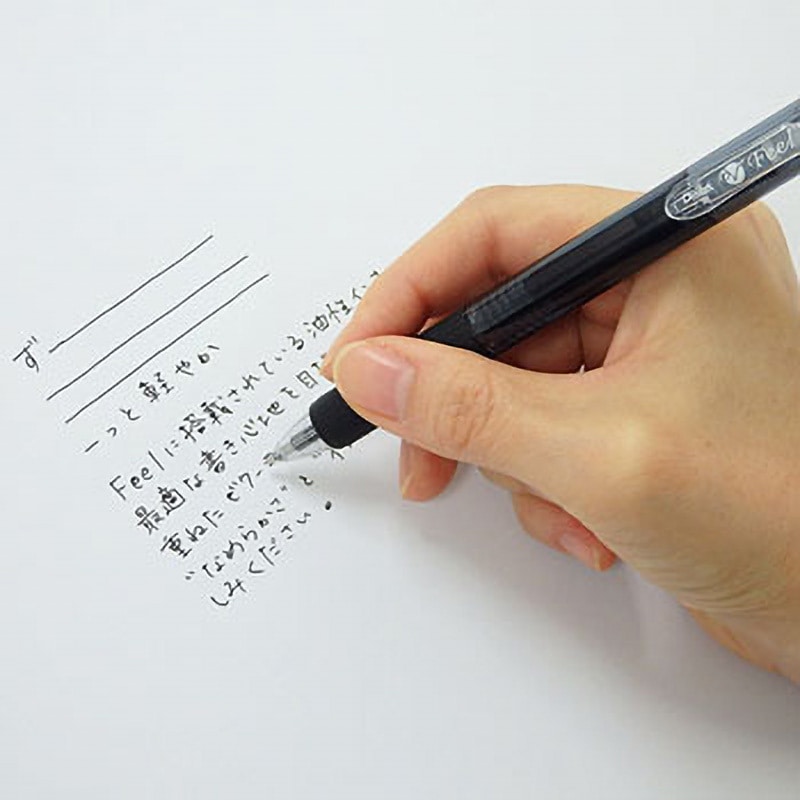 ず
ーっと軽やか
Feelに搭載されている油性イン
最適な書き心地を目
重ねたビクー
"なめらかさ"と
しみください。
Feel